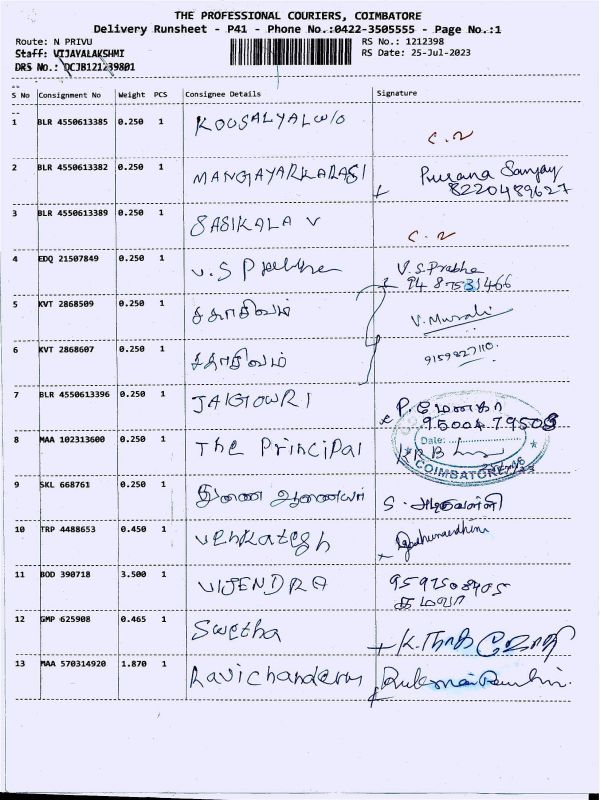 THE PROFESSIONAL COURIERS, COIMBATORE
Delivery Runsheet - P41 - Phone No.:0422-3505555 - Page No.:1
Route: N PRIVU
RS No.: 1212398
Staff: VIJAYALAKSHMI
RS Date: 25-Jul-2023
DRS No.: DCJB121239801
S No Consignment No Weight PCS Consignee Details Signature
1 BLR 4550613385 0.250 1 KOUSALYAL W/O
2 BLR 4550613382 0.250 1 MANGAYARKARASI Sanjay
8220489627
3 BLR 4550613389 0.250 1 SASIKALA V
4 EDQ 21507849 0.250 1 V.S Prabha V.S Prabha
5 KVT 2868509 0.250 1 சதாசிவம் V. Murali
6 KVT 2868607 0.250 1 சதாசிவம்
7 BLR 4550613396 0.250 1 JAIGOWRI P. மேனகா
8 MAA 102313600 0.250 1 The Principal
Date:
COIMBATORE
9 SKL 668761 0.250 1 துணை ஆணையர்
10 TRP 4488653 0.450 1 Venkatesh
11 BOD 390718 3.500 1 VIJENDRA
12 GMP 625908 0.465 1 Swetha
13 MAA 570314920 1.870 1 Ravichandern